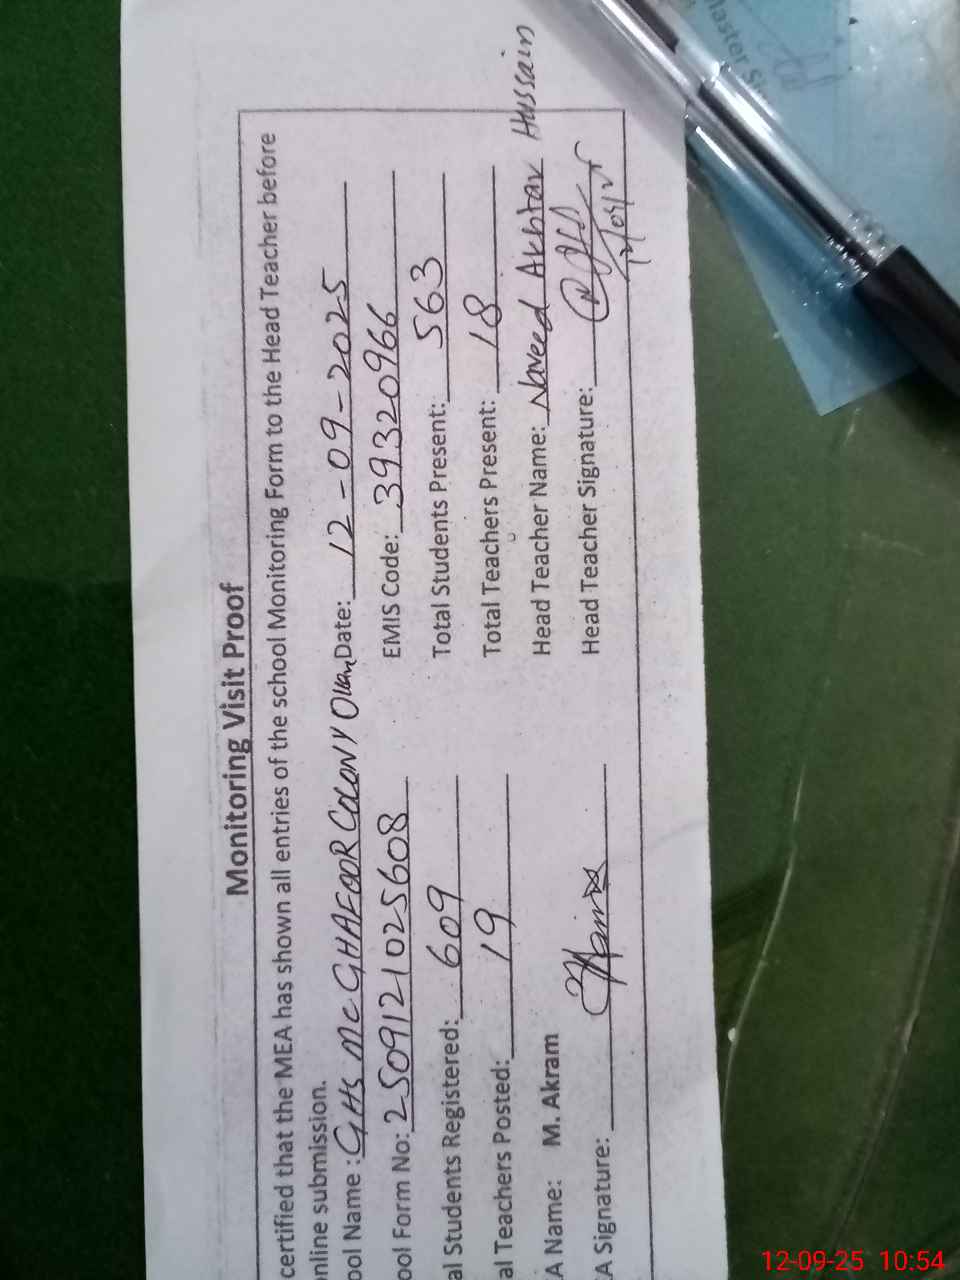 Monitoring Visit Proof
certified that the MEA has shown all entries of the school Monitoring Form to the Head Teacher before
nline submission.
ool Name : GHS MC GHAFOOR COLONY Date: 12-09-2025
ool Form No: 2509121025608 EMIS Code: 39320966
al Students Registered: 609 Total Students Present: 563
al Teachers Posted: 19 Total Teachers Present: 18
A Name: M. Akram Head Teacher Name: Naveed Akhtar Hussain
A Signature: Head Teacher Signature:
12/09/25
laster Si
12-09-25 10:54